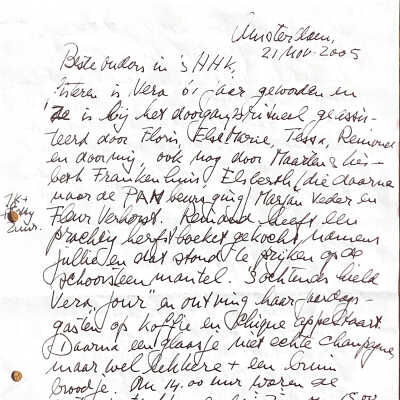 Amsterdam,
21 Nov. 2005
Beste ouders in 's HHK,
Gisteren is Vera 61 jaar geworden en
ze is bij het doorgangsritueel geassis-
teerd door Floris, Else Marie, Tessa, Reinoud
en door mij, ook nog door Maarten & Lies-
beth Frankenhuis, Elsbeth (die daarna
naar de PAN beurs ging) Marjan Veder en
Fleur Verhorst. Reinoud heeft een
prachtig herfstboeket gekocht namens
jullie en dat stond te prijken op de
schoorsteenmantel. 's Ochtends hield
Vera "jour" en ontving haar verjaardags-
gasten op koffie en chique appeltaart.
Daarna een glaasje niet echte champagne
maar wel lekkere + een bruin
broodje. Om 14.00 uur waren de